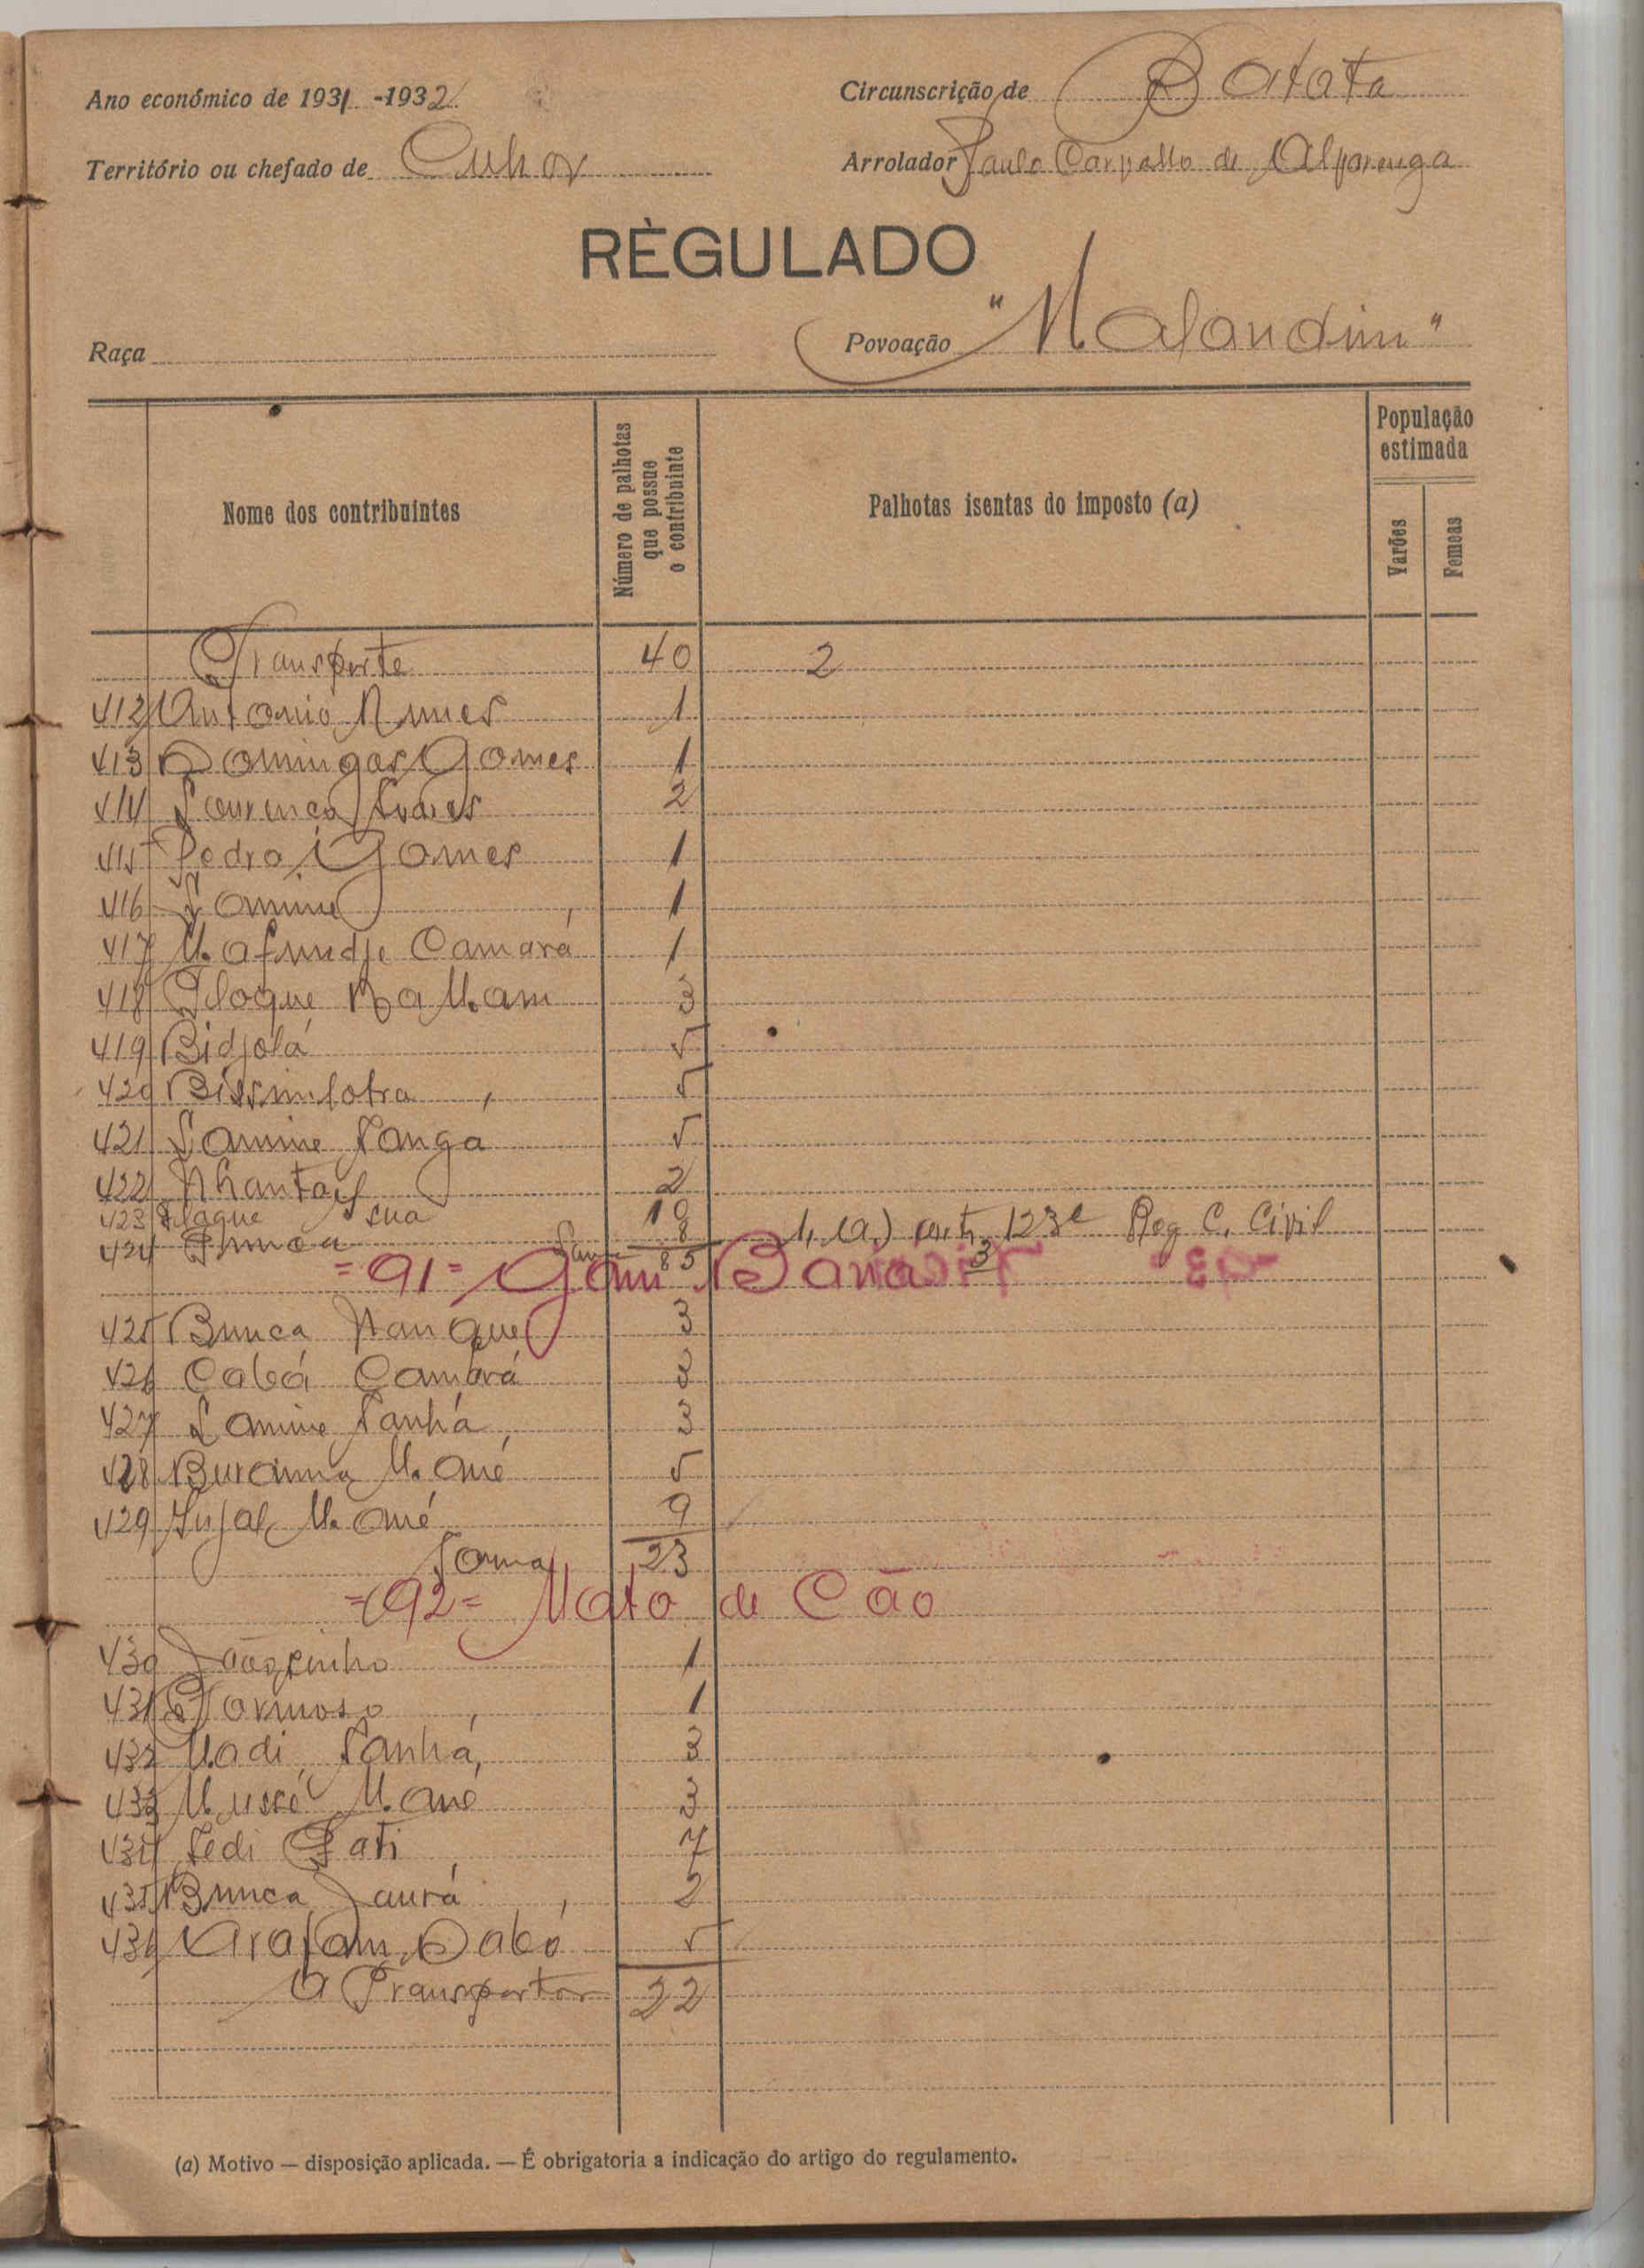 Ano económico de 1931 -1932
Circunscrição de Bafata
Território ou chefado de Cuhor
Arrolador Paulo Carvalho de Alvarenga
RÈGULADO
Raça
Povoação "Mafandim"
Nome dos contribuintes
Número de palhotas que possue o contribuinte
Palhotas isentas do imposto (a)
População estimada
Varões
Femeas
Transporte 40 2
412 Antonio Nunes 1
413 Domingas Gomes 1
414 Lourenço Soares 2
415 Pedro Gomes 1
416 Lamine 1
417 Mafundje Camará 1
418 Flaque Na Mam 3
419 Bidjolá 5
420 Bissimlotra 5
421 Lamine Sanga 5
422 Nhantay 2
423 Flaque sua 10
424 8 1, (a) art. 123º Reg C. Civil
Soma 85 3
=91= Gam Bana
425 Bunca Nanque 3
426 Cabá Camará 3
427 Lamine Sanhá 3
428 Buraima Mané 5
429 Jufal Mané 9
Soma 23
=92= Mato de Cão
430 Joãosinho 1
431 Formoso 1
432 Madi Sanhá 3
433 Mussé Mané 3
434 Sedi Fati 7
435 Bunca Jaurá 2
436 Arafam Dabó 5
A Transportar 22
(a) Motivo — disposição aplicada. — É obrigatoria a indicação do artigo do regulamento.